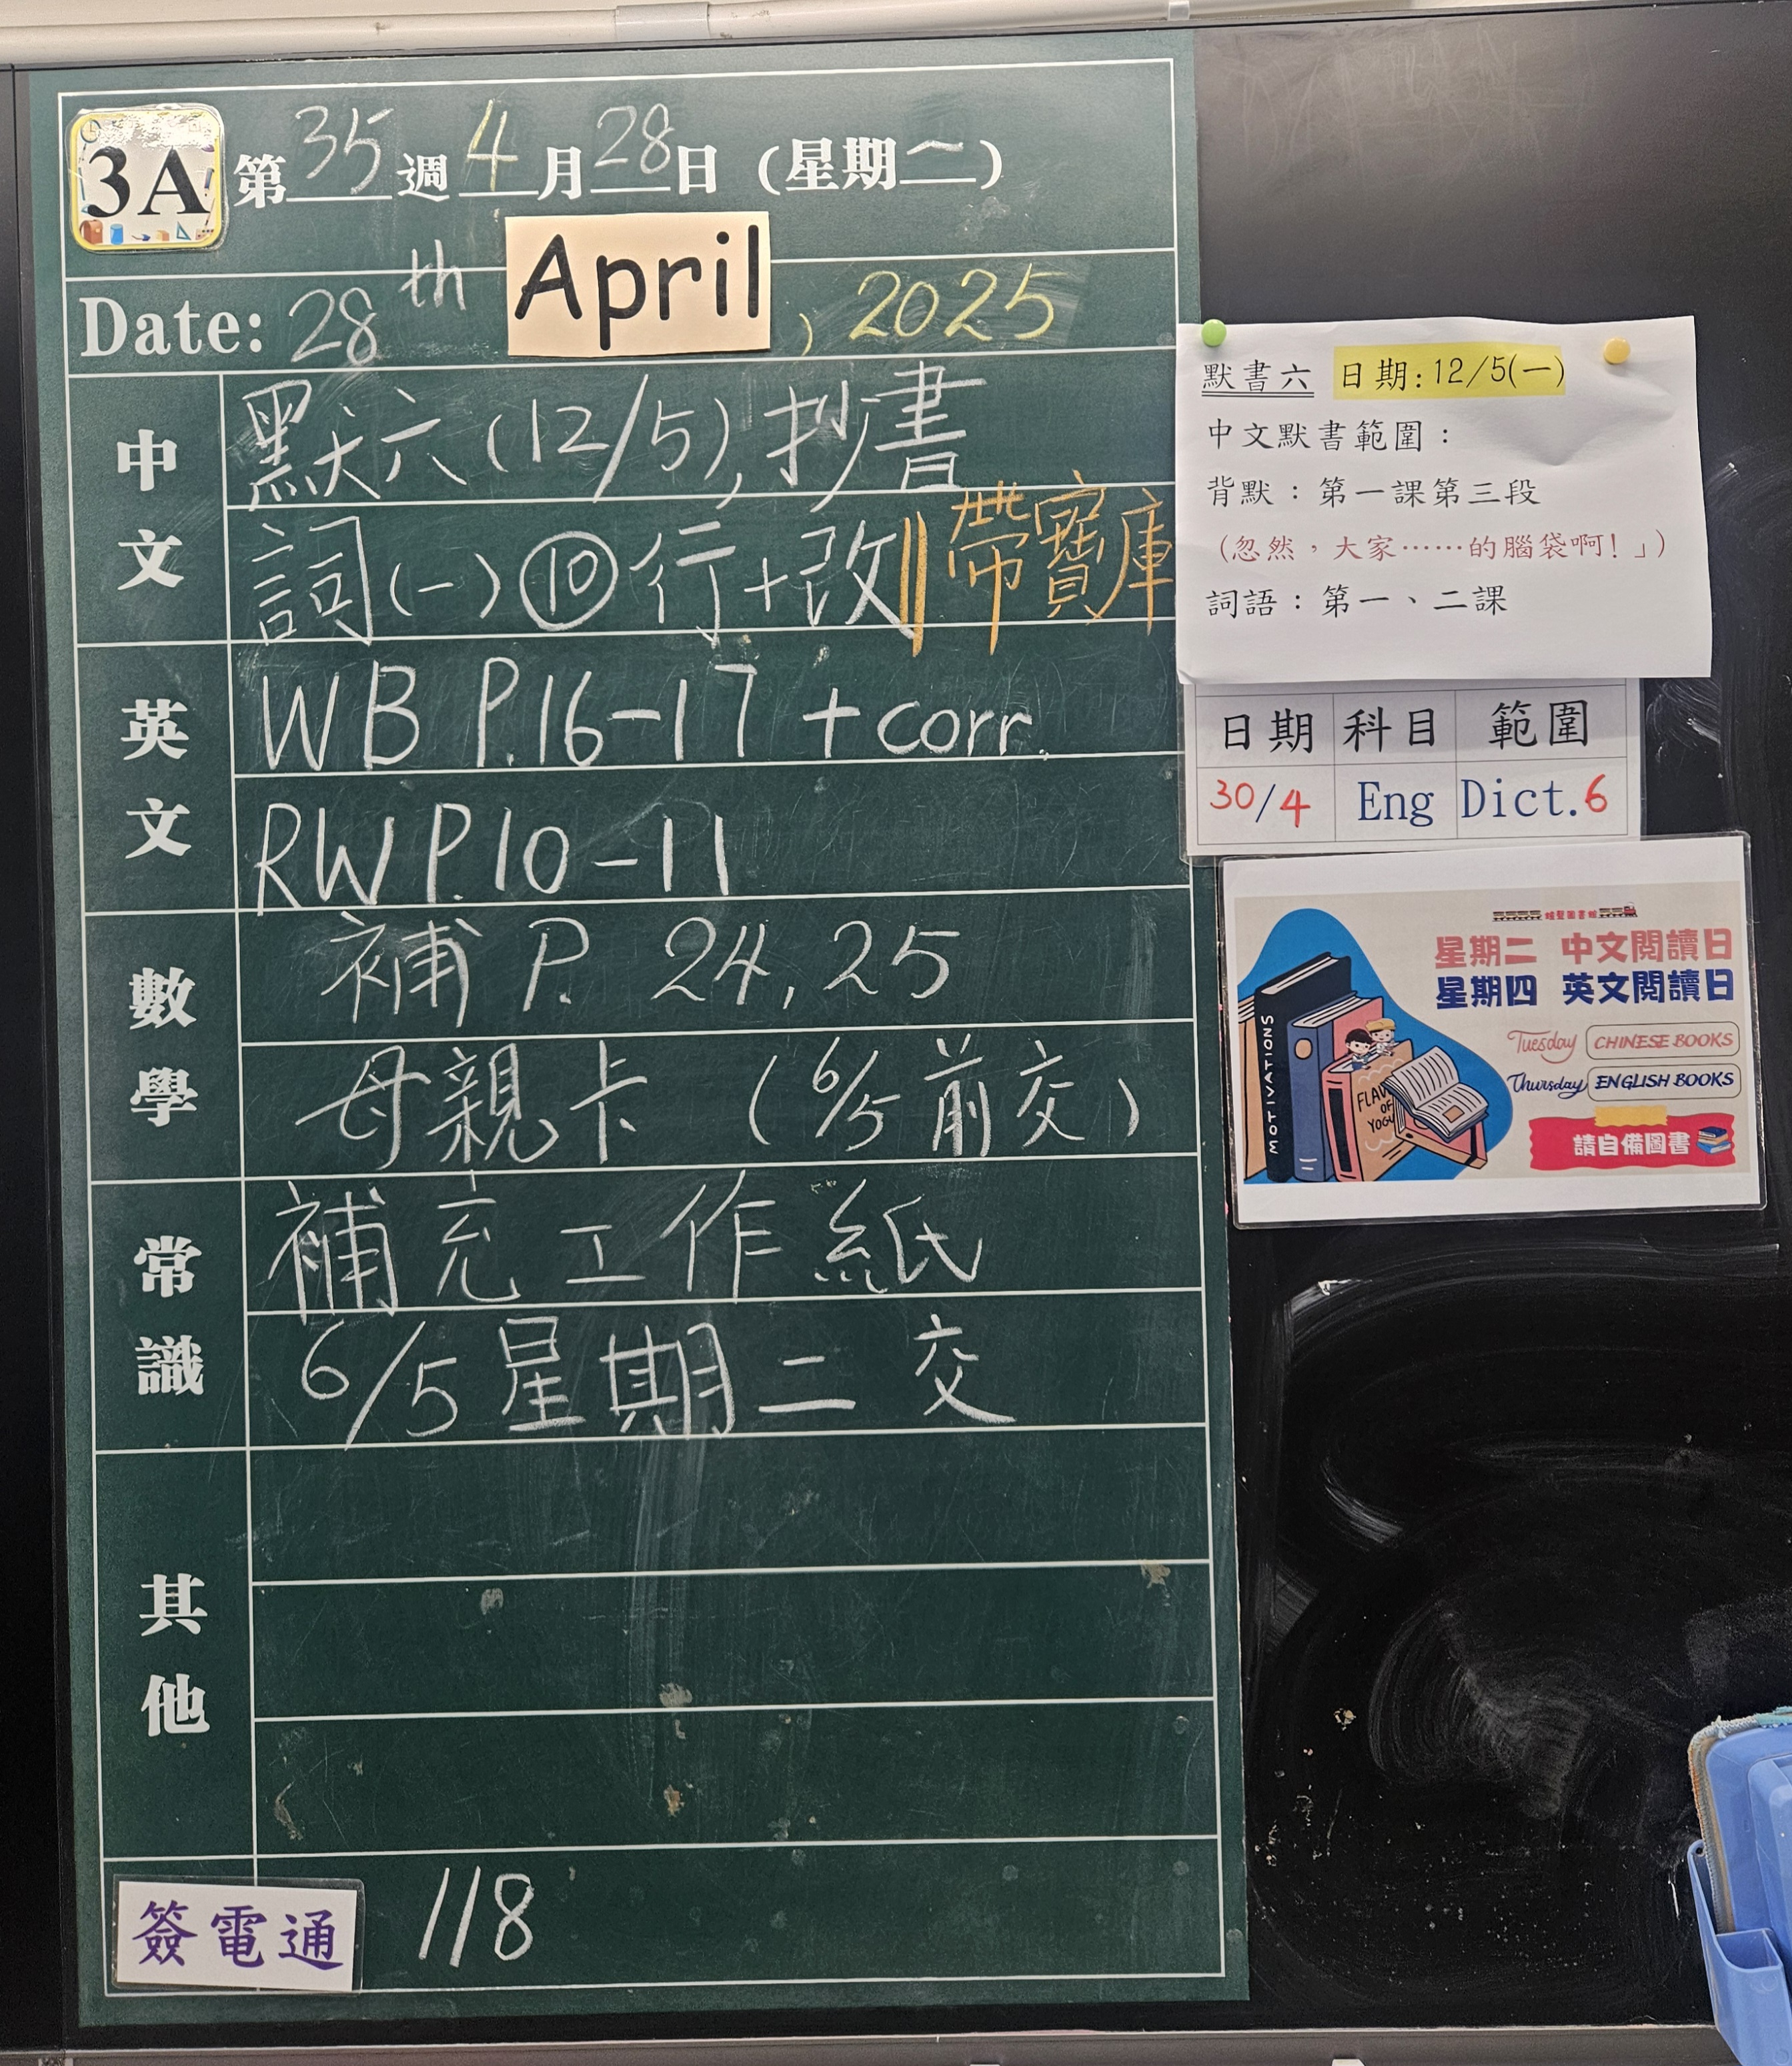 3A 第35週4月28日(星期一)
Date: 28th April, 2025
中文
默六(12/5),抄書
詞(一)⑩行+改||帶寶庫
英文
WB P.16-17 +corr.
RW P.10-11
數學
補 P. 24, 25
母親卡 (6/5前交)
常識
補充工作紙
6/5星期二交
其他
簽電通 118
默書六 日期:12/5(一)
中文默書範圍:
背默:第一課第三段
(忽然,大家……的腦袋啊!」)
詞語:第一、二課
日期 科目 範圍
30/4 Eng Dict.6
星期二 中文閱讀日
星期四 英文閱讀日
Tuesday CHINESE BOOKS
Thursday ENGLISH BOOKS
請自備圖書
MOTIVATIONS
OF